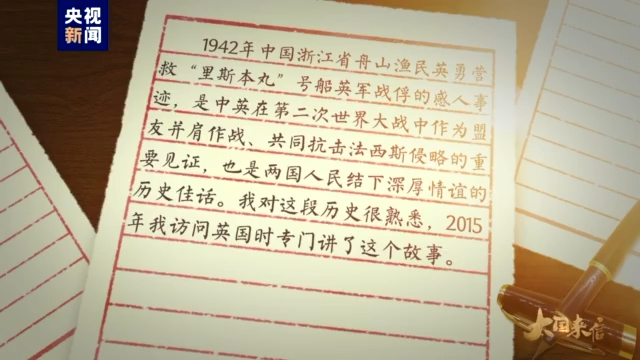 央视
新闻
1942年中国浙江省舟山渔民英勇营
救“里斯本丸”号船英军战俘的感人事
迹，是中英在第二次世界大战中作为盟
友并肩作战、共同抗击法西斯侵略的重
要见证，也是两国人民结下深厚情谊的
历史佳话。我对这段历史很熟悉，2015
年我访问英国时专门讲了这个故事。
大国来信